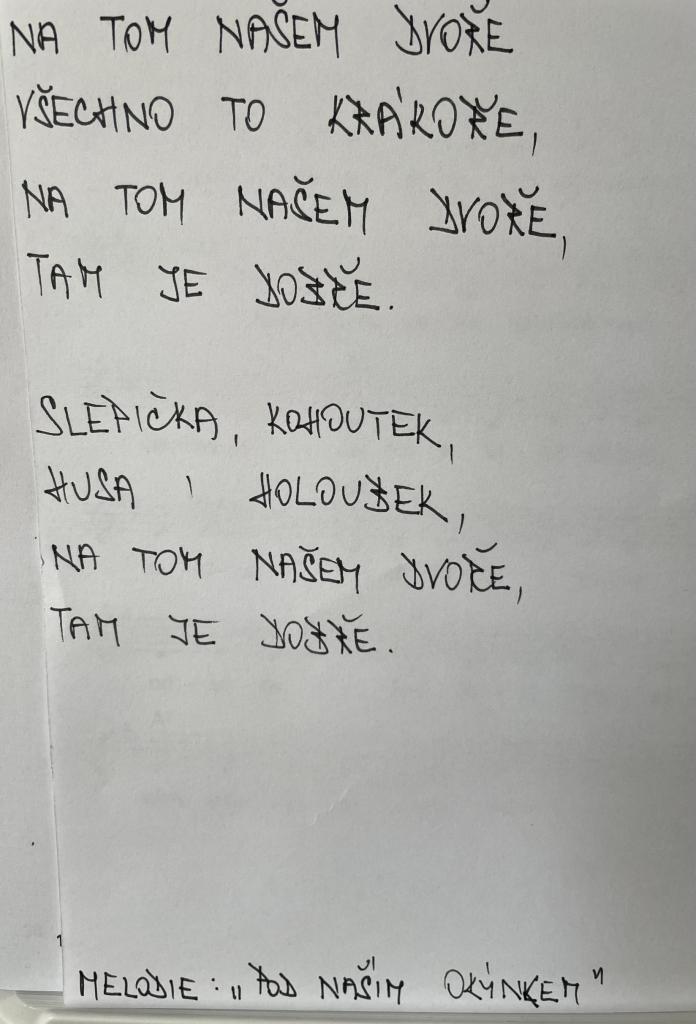 NA TOM NAŠEM DVOŘE
VŠECHNO TO KRÁKOŘE,
NA TOM NAŠEM DVOŘE,
TAM JE DOBŘE.
SLEPIČKA, KOHOUTEK,
HUSA I HOLOUBEK,
NA TOM NAŠEM DVOŘE,
TAM JE DOBŘE.
MELODIE: „POD NAŠÍM OKÝNKEM"